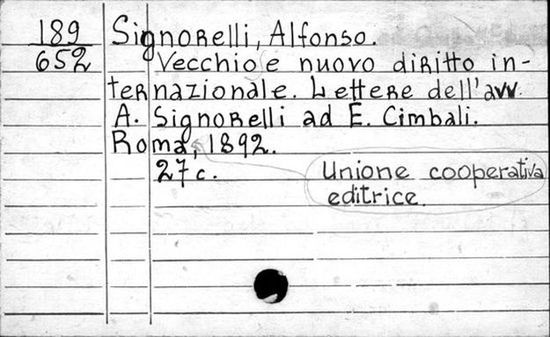 189
652
Signorelli, Alfonso.
Vecchio e nuovo diritto in-
ternazionale. Lettere dell'avv.
A. Signorelli ad E. Cimbali.
Roma, 1892.
27 c.
Unione cooperativa
editrice.